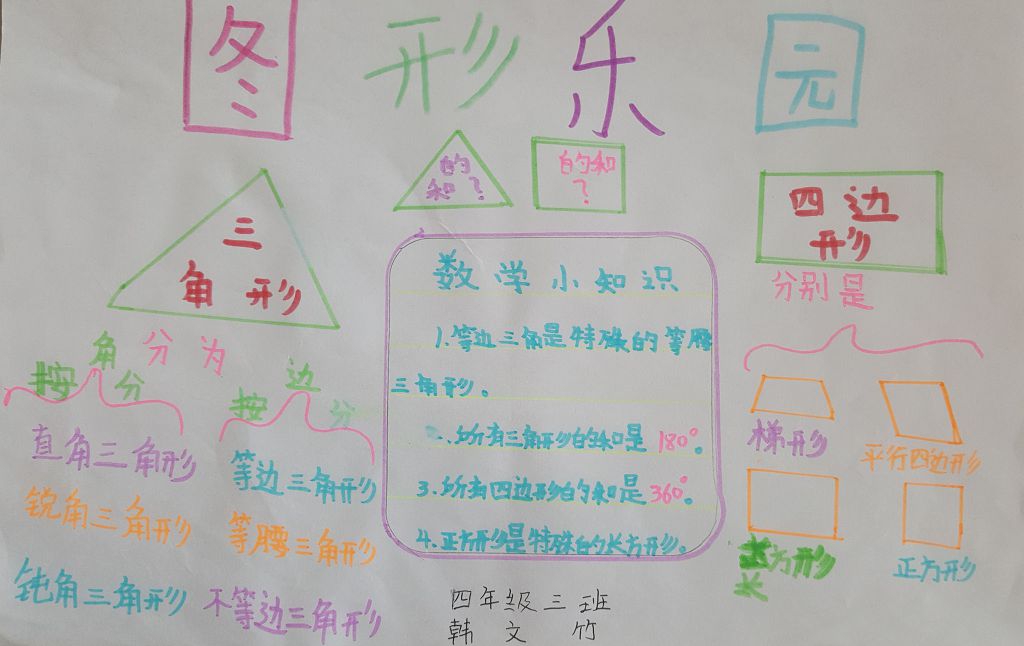 图形乐园
的
和？
的和
？
三
角形
四边
形
分别是
分为
按角分
直角三角形
锐角三角形
钝角三角形
按边分
等边三角形
等腰三角形
不等边三角形
数学小知识
1.等边三角是特殊的等腰
三角形。
2.所有三角形的和是180°。
3.所有四边形的和是360°。
4.正方形是特殊的长方形。
梯形
平行四边形
长方形
长
正方形
四年级三班
韩文竹